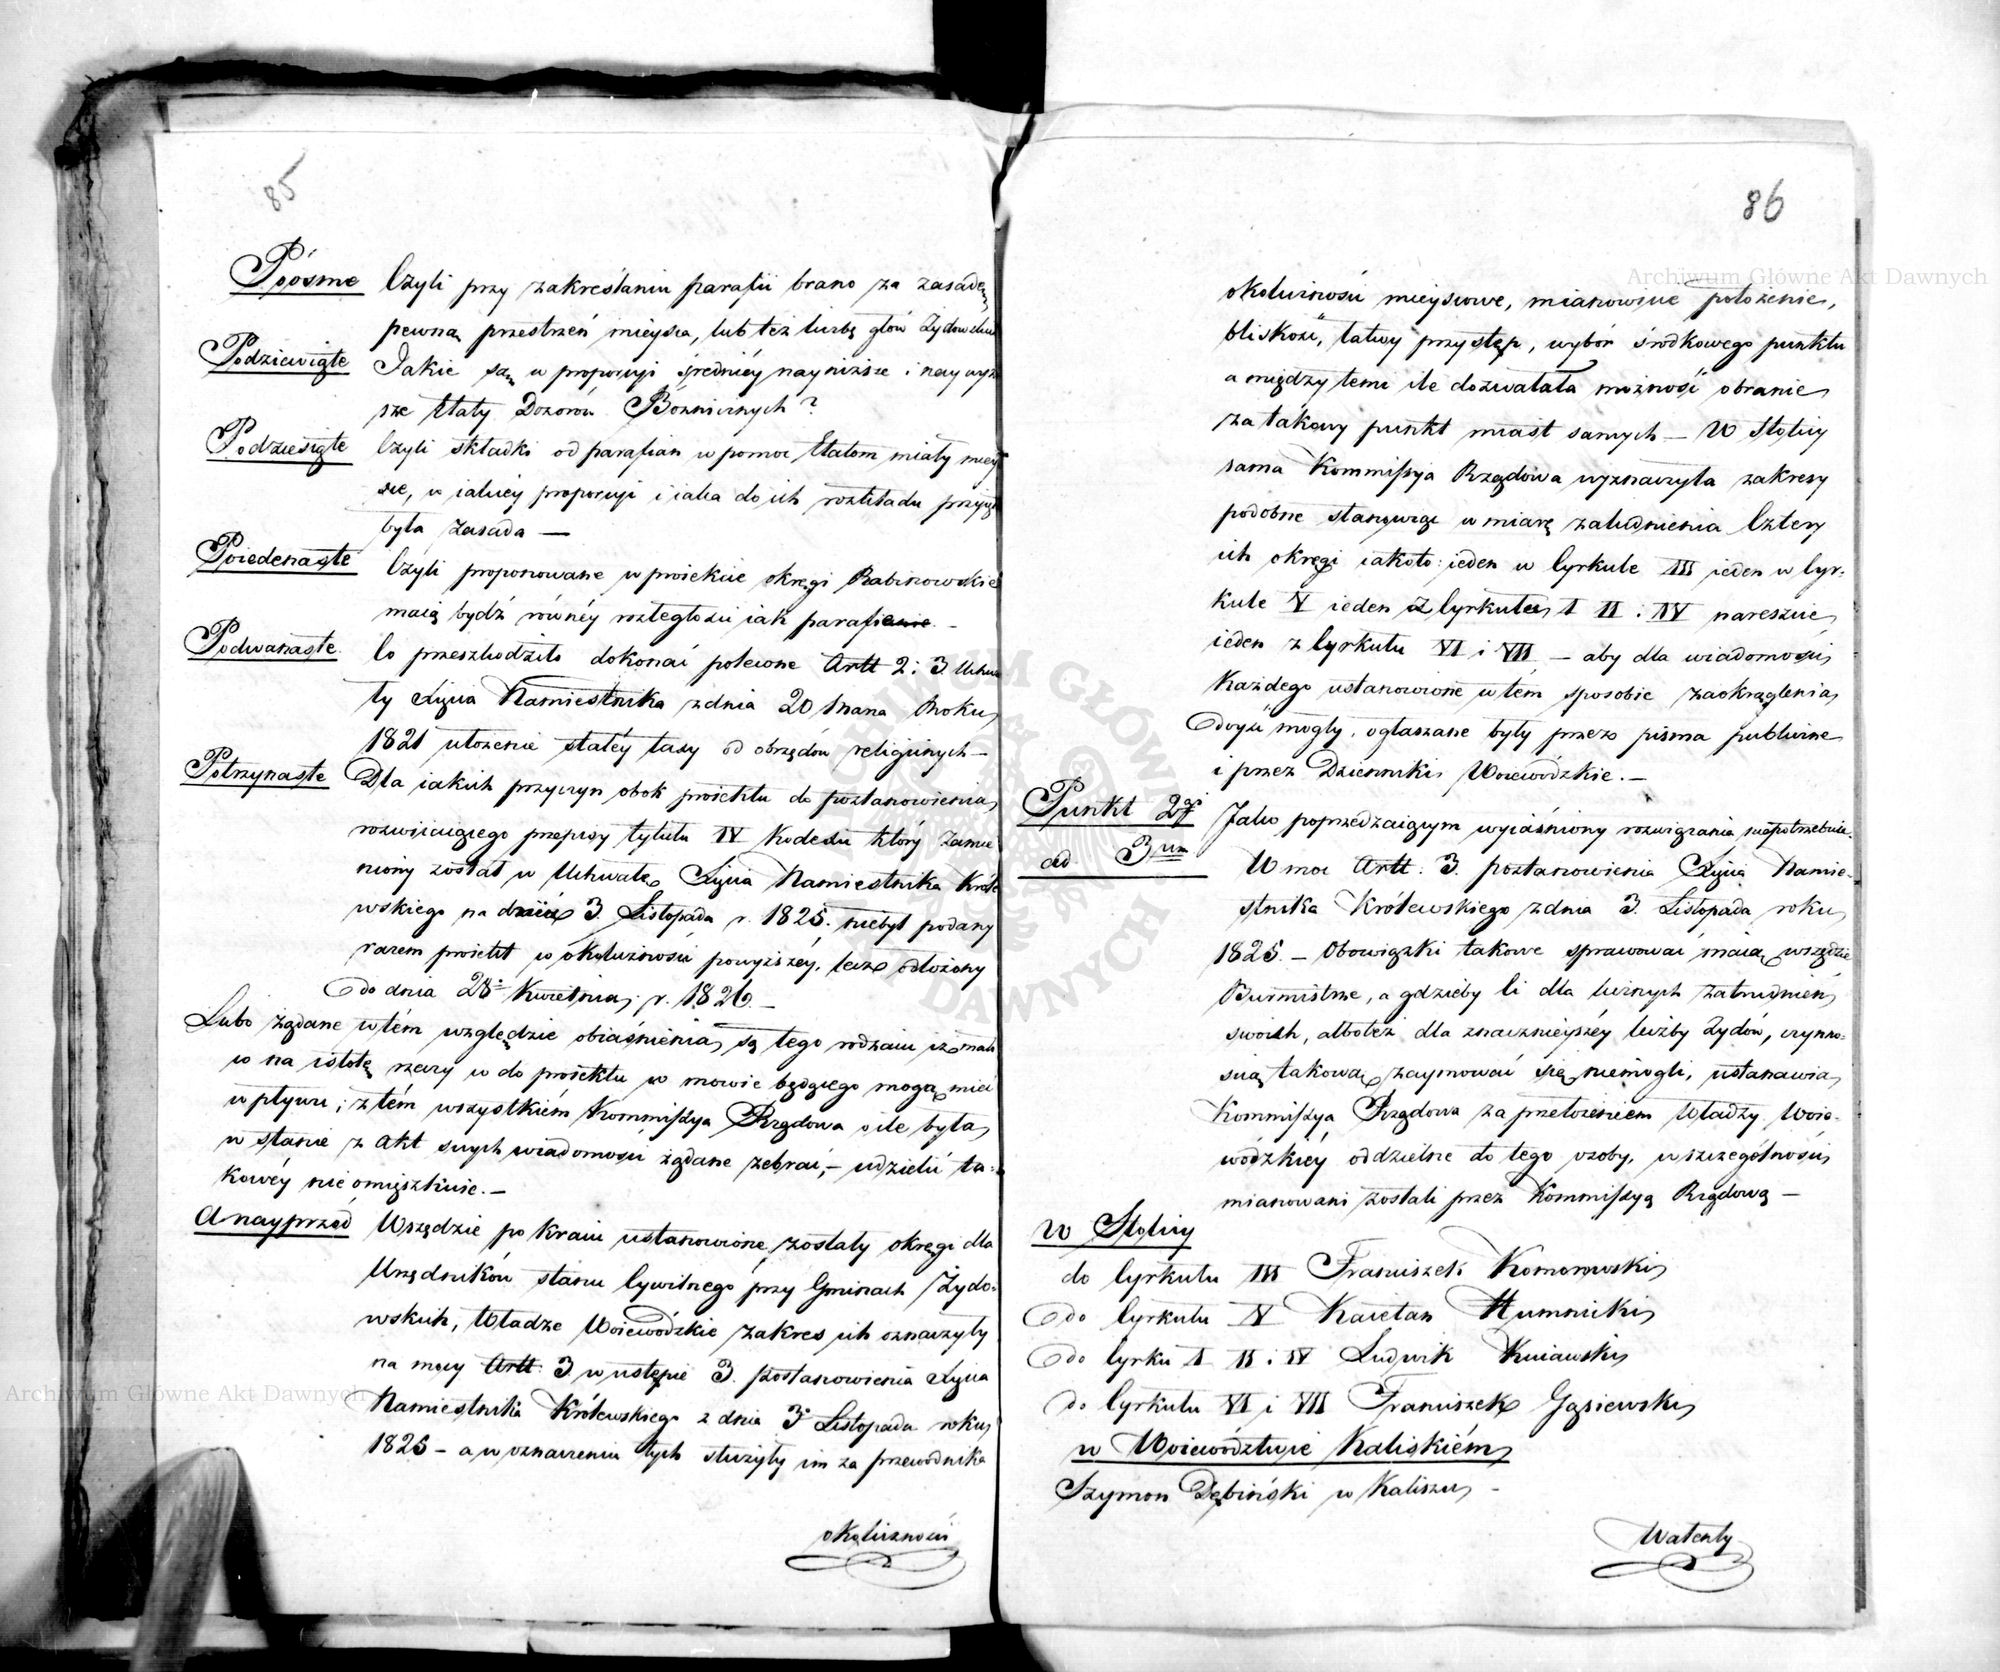 85
Poósme Czyli przy zakreślaniu parafii brano za zasadę
pewną przestrzeń mieysca, lub też liczbę głów Żydowskich
Podziewiąte Jakie są w proporcyi średniéy nayniższe i naywyż
sze Etaty Dozorów Bóżniczych?
Podziesiąte Czyli składki od parafian w pomoc Etatom miały miey
sce, w iakiéy proporcyi i iaka do ich rozkładu przyięta
była zasada —
Poiedenaste Czyli proponowane w proiekcie okręgi Rabinowskie
maią bydź równéy rozległości iak parafie
Podwanaste Co przeszkodziło dokonać polecone Artt 2 i 3 Uchwa
ły Xięcia Namiestnika z dnia 20 Marca Roku
1821 ułożenie stałéy taxy od obrzędów religiinych —
Potrzynaste Dla iakich przyczyn obok proiektu do postanowienia
rozwiiaiącego przepisy tytułu IV Kodexu który zamie
niony został w Uchwałę Xięcia Namiestnika Króle
wskiego na dniu 3 Listopada r. 1825. niebył podany
razem proiekt w okoliczności powyższéy, lecz odłożony
do dnia 28 Kwietnia r. 1826. —
Lubo żądane w tém względzie obiaśnienia są tego rodzaiu iż mało
co na istotę rzeczy w do proiektu w mowie będącego mogą mieć
wpływu; z tém wszystkiém Kommissya Rządowa o ile była
w stanie z Akt swych wiadomości żądane zebrać, — udzielić ta-
kowéy nie omięszkuie. —
A nayprzód Wszędzie po kraiu ustanowione zostały okręgi dla
Urzędników stanu Cywilnego przy Gminach Żydo-
wskich, Władze Woiewódzkie zakres ich oznaczyły
na mocy Artt. 3 w ustępie 3. postanowienia Xięcia
Namiestnika Królewskiego z dnia 3 Listopada roku
1825 — a w oznaczeniu tych służyły im za przewodnika
okoliczności
86
okoliczności mieyscowe, mianowicie położenie,
bliskość, łatwy przystęp, wybór środkowego punktu
a między temi ile dozwalała możność obranie
za takowy punkt miast samych — W Stolicy
sama Kommissya Rządowa wyznaczyła zakresy
podobne stanowiąc w miarę zaludnienia Cztery
ich okręgi iakoto: ieden w Cyrkule III ieden w Cyr-
kule V ieden z Cyrkułu I II i IV nareszcie
ieden z Cyrkułu VI i VII — aby dla wiadomości
Każdego ustanowione w tém sposobie zaokrąglenia
doyść mogły, ogłaszane były przez pisma publiczne
i przez Dzienniki Woiewódzkie. —
Punkt 2gi Jako poprzedzaiącym wyiaśniony rozwiązania niepotrzebuie.
ad 3um W moc Artt: 3. postanowienia Xięcia Namie-
stnika Królewskiego z dnia 3 Listopada roku
1825. — Obowiązki takowe sprawować maią wszędzie
Burmistrze, a gdzieby Ci dla licznych zatrudnień
swoich, albo też dla znacznieyszéy liczby Żydów, czynno-
ścią takową zaymować się niemogli, ustanawia
Kommissya Rządowa za przełożeniem Władzy Woie-
wódzkiéy oddzielne do tego osoby, w szczególności
mianowani zostali przez Kommissyą Rządową —
w Stolicy
do Cyrkułu III Franciszek Komorowski
do Cyrkułu V Kaietan Humnicki
do Cyrku I II i IV Ludwik Kuiawski
do Cyrkułu VI i VII Franciszek Gąsiewski
w Woiewództwie Kaliskiém
Szymon Dębiński w Kaliszu —
Walenty
Archiwum Główne Akt Dawnych
Archiwum Główne Akt Dawnych
ARCHIWUM GŁÓWNE AKT DAWNYCH